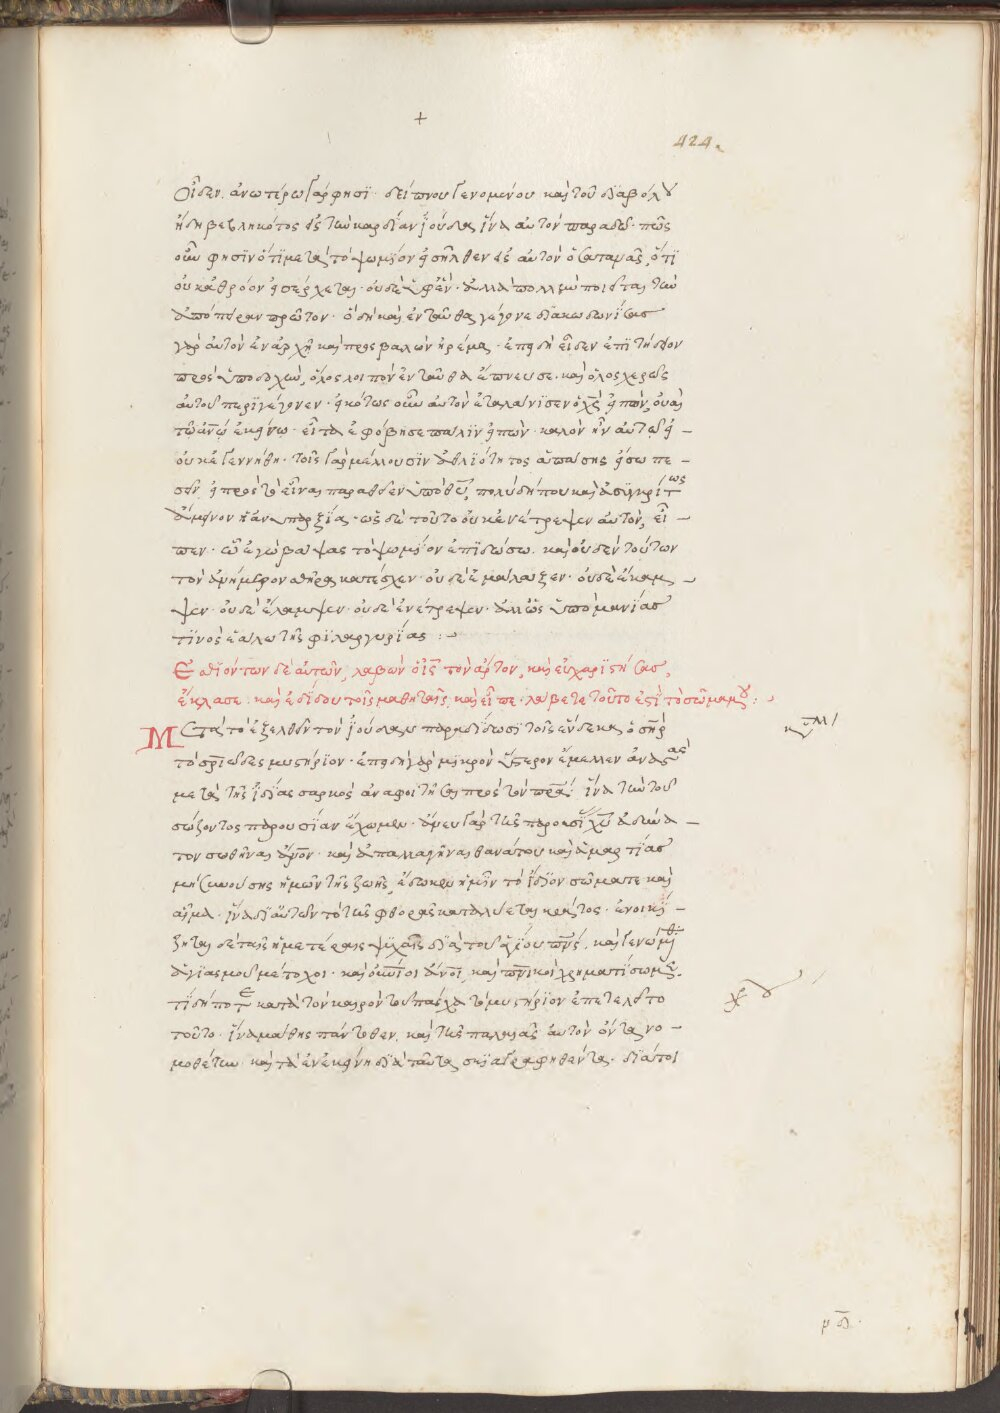 +
424.
οἶδεν. ἀνωτέρω γάρ φησϊ· δείπνου γενομένου καὶ τοῦ διαβόλου
ἤδη βεβληκότος εἰς τὴν καρδίαν ἰούδα, ἵνα αὐτὸν παραδῶ· πῶς
οὖν φησῒν ὅτι μετὰ τὸ ψωμίον εἰσῆλθεν εἰς αὐτὸν ὁ σατανᾶς, ὅτι
οὐκ ἀθρόον εἰσέρχεται· οὐδὲ ὑφέν· ἀλλὰ πολλὴν ποιεῖται τὴν
ἀπόπειραν πρῶτον· ὃ δὴ καὶ ἐνταῦθα γέγονε διακωδωνίσας
γὰρ αὐτὸν ἐν ἀρχῇ καὶ προσβαλὼν ἠρέμα· ἐπειδὴ εἶδεν ἐπιτήδειον
πρὸς ὑποδοχὴν, ὅλος λοιπὸν ἐνταῦθα ἔπνευσε· καὶ ὁλοσχερῶς
αὐτοῦ περιγέγονεν· εἰκότως οὖν αὐτὸν ἐταλάνισεν ὁ χς εἰπών, οὐαὶ
τῶ ανω ἐκείνω· εἶτα ἐφόβησε πάλιν εἰπών· καλὸν ἦν αὐτῶ εἰ -
οὐκ ἐγεννήθη· τοῖς γὰρ μέλλουσιν ἀθλιότητος ἁπάσης εἴσω πε -
σεῖν εἰ πρὸς τὸ εἶναι παραχθεῖεν ὑπὸ θυ, πολὺ δήπου καὶ ἀσυγκρίτως
ἄμεινον ἡ ἀνυπαρξία· ὡς δὲ τοῦτο οὐκ ἐνέτρεψεν αὐτόν, εἶ -
πεν· ὧ ἐγὼ βάψας τὸ ψωμίον ἐπιδώσω. καὶ οὐδὲν τούτων
τὸν ἀνήμερον θῆρα κατέσχεν· οὐδὲ ἐμάλαξεν· οὐδὲ ἔκαμ -
ψεν· οὐδὲ ἔλαμψεν· οὐδὲ ἐνέτρεψεν· ἀλλ' ὡς ὑπὸ μανίας
τινὸς ἑάλω τῆς φιλαργυρίας :
Ἐσθιόντων δὲ αὐτῶν, λαβὼν ὁ ις τὸν ἄρτον, καὶ εὐχαριστήσας,
ἔκλασε· καὶ ἐδίδου τοῖς μαθηταῖς, καὶ εἶπε· λάβετε τοῦτο ἐστὶ τὸ σῶμα μου :
Μετὰ τὸ ἐξελθεῖν τὸν ἰούδαν παραδίδωσι τοῖς ἕνδεκα ὁ σηρ
τὸ σριῶδες μυστήριον· ἐπειδὴ γὰρ μικρὸν ὕστερον ἔμελλεν ἀναστὰς
μετὰ τῆς ἰδίας σαρκὸς ἀναφοιτῆσαι πρὸς τὸν πρα· ἵνα τὴν τοῦ
σώζοντος παρουσίαν ἔχωμεν· ἄνευ γὰρ τῆς παρουσίας χυ ἀδύνα -
τον σωθῆναι ανον· καὶ ἀπαλλαγῆναι θανάτου καὶ ἁμαρτίας
μὴ συνούσης ἡμῶν τῆς ζωῆς, ἔδωκεν ἡμῖν τὸ ἴδιον σῶμα τε καὶ
αἷμα· ἵνα δι' αὐτῶν τὸ τῆς φθορᾶς καταλύεται κράτος· ἐνοικί -
ζηται δὲ ταῖς ἡμετέραις ψυχαῖς διὰ τοῦ ἁγίου πνς, καὶ γενώμεθα
ἁγιασμοῦ μέτοχοι· καὶ ουνιοι ανοι, καὶ πνικοὶ χρηματίσωμεν.
τί δήποτε κατὰ τὸν καιρὸν τοῦ πάσχα τὸ μυστήριον ἐπετελεῖτο
τοῦτο· ἵνα μάθης πάντοθεν, καὶ τῆς παλαιᾶς αὐτὸν ὄντα νο -
μοθέτην· καὶ τὰ ἐν ἐκείνη διὰ ταῦτα σκιαγραφηθέντα· διά τοι